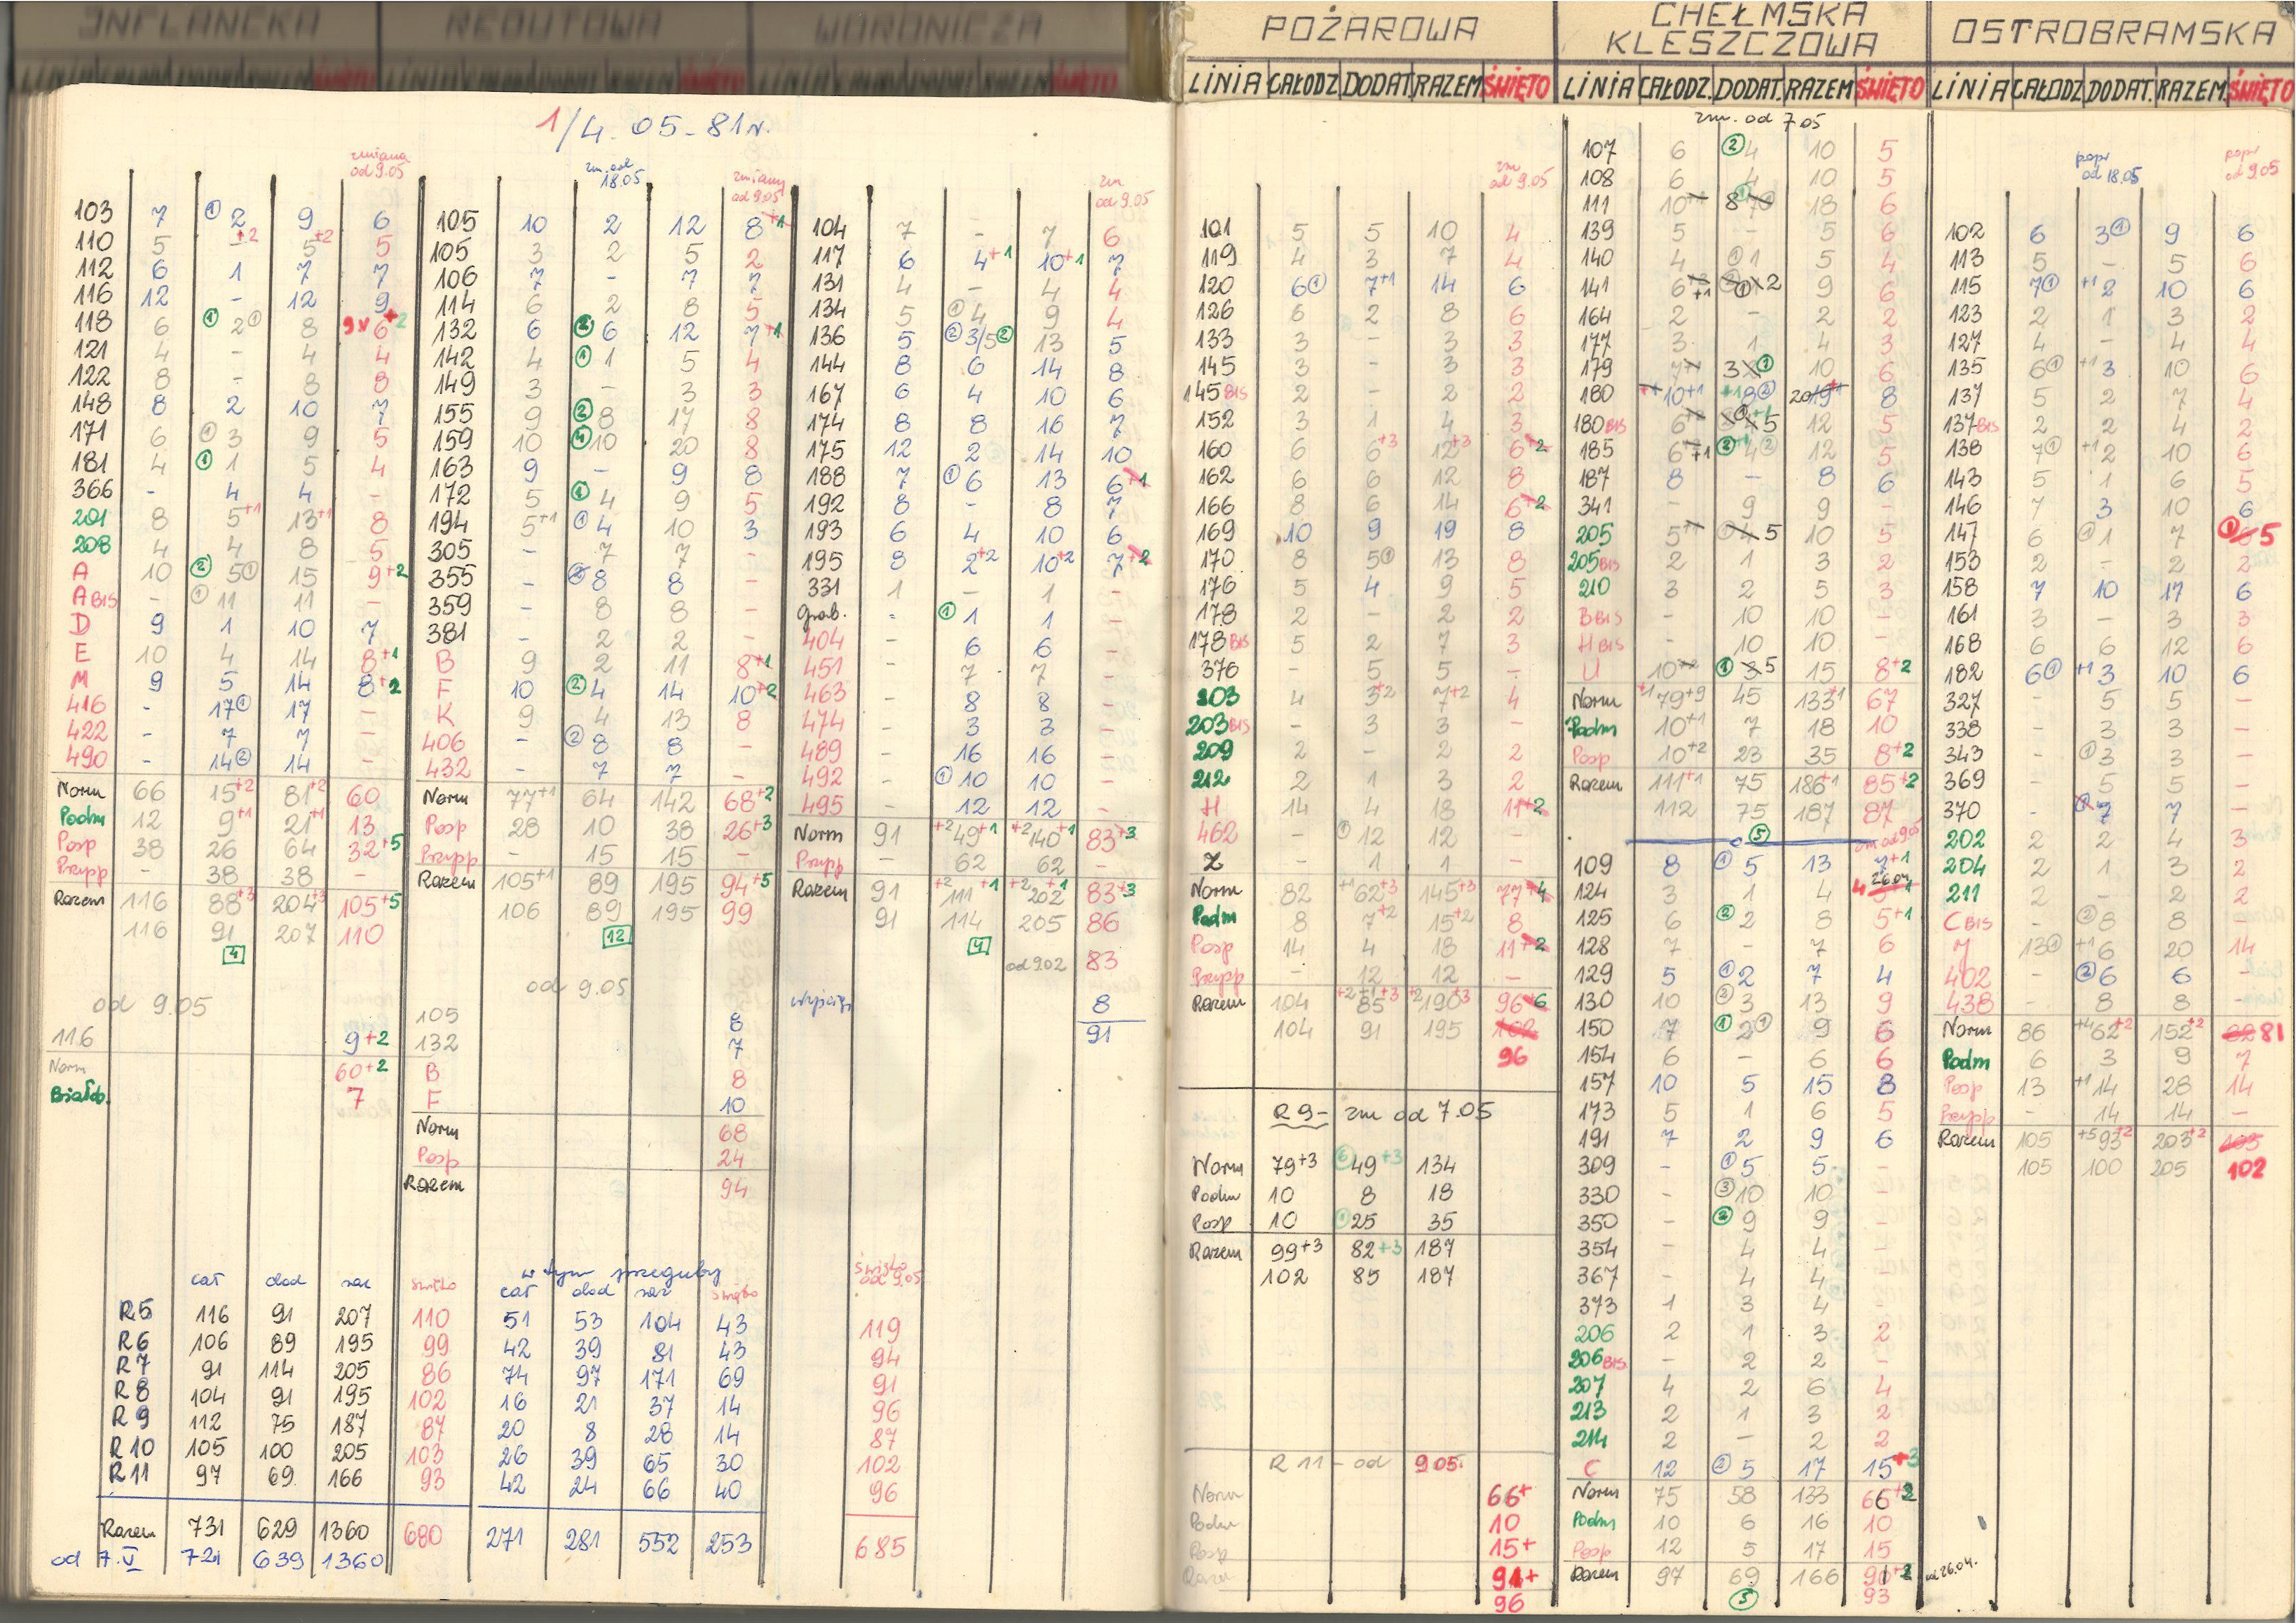 INFLANCKA REDUTOWA WORONICZA
POŻAROWA
CHEŁMSKA
KLESZCZOWA
OSTROBRAMSKA
LINIA CAŁODZ DODAT RAZEM ŚWIĘTO LINIA CAŁODZ. DODAT. RAZEM ŚWIĘTO LINIA CAŁODZ DODAT. RAZEM. ŚWIĘTO
1/4. 05-81r.
zmiana od 9.05
103 7 ① 2 9 6
110 5 - +2 5 +2 5
112 6 1 7 7
116 12 - 12 9
118 6 ① 2 ① 8 6
121 4 - 4 4
122 8 - 8 8
148 8 2 10 7
171 6 ① 3 9 5
181 4 ① 1 5 4
366 - 4 4 -
201 8 5+1 13+1 8
208 4 4 8 5
A 10 ② 5① 15 9+2
A BIS - ① 11 11 -
D 9 1 10 7
E 10 4 14 8+1
M 9 5 14 8+2
416 - 17① 17 -
422 - 7 7 -
490 - 14② 14 -
Norm 66 15+2 81+2 60
Podm 12 9+1 21+1 13
Posp 38 26 64 32+5
Przypp - 38 38 -
Razem 116 88+3 204+3 105+5
116 91 207 110
4
od 9.05
116 9+2
Norm 60+2
Białob. 7
zm. od 18.05
zmiany od 9.05
105 10 2 12 8+1
105 3 2 5 2
106 7 - 7 7
114 6 2 8 5
132 6 ② 6 12 7+1
142 4 ① 1 5 4
149 3 - 3 3
155 9 ② 8 17 8
159 10 ④ 10 20 8
163 9 - 9 8
172 5 ① 4 9 5
194 5+1 ① 4 10 3
305 - 7 7 -
355 - ② 8 8 -
359 - 8 8 -
381 - 2 2 -
B 9 2 11 8+1
F 10 ② 4 14 10+2
K 9 4 13 8
406 - ② 8 8 -
432 - 7 7 -
Norm 77+1 64 142 68+2
Posp 28 10 38 26+3
Przypp - 15 15 -
Razem 105+1 89 195 94+5
106 89 195 99
12
od 9.05
105 8
132 7
B 8
F 10
Norm 68
Posp 24
Razem 94
zm. od 9.05
104 7 - 7 6
117 6 4+1 10+1 7
131 4 - 4 4
134 5 ① 4 9 4
136 5 ② 3/5 ② 13 5
144 8 6 14 8
167 6 4 10 6
174 8 8 16 7
175 12 2 14 10
188 7 ① 6 13 6+1
192 8 - 8 7
193 6 4 10 6
195 8 2+2 10+2 7+2
331 1 - 1 -
Grab. - ① 1 1 -
404 - 6 6 -
451 - 7 7 -
463 - 8 8 -
474 - 3 3 -
489 - 16 16 -
492 - ① 10 10 -
495 - 12 12 -
Norm 91 +2 49+1 +2 140+1 83+3
Przypp - 62 62 -
Razem 91 +2 111+1 +2 202+1 83+3
91 114 205 86
4
od 9.02 83
wyścigi 8
91
w tym przeguby
cał dod raz święto cał dod raz święto święto od 9.05
R5 116 91 207 110 51 53 104 43 119
R6 106 89 195 99 42 39 81 43 94
R7 91 114 205 86 74 97 171 69 91
R8 104 91 195 102 16 21 37 14 96
R9 112 75 187 87 20 8 28 14 87
R10 105 100 205 103 26 39 65 30 102
R11 97 69 166 93 42 24 66 40 96
Razem 731 629 1360 680 271 281 552 253 685
od 7.V 721 639 1360
zm od 9.05
101 5 5 10 4
119 4 3 7 4
120 6① 7+1 14 6
126 6 2 8 6
133 3 - 3 3
145 3 - 3 3
145 BIS 2 - 2 2
152 3 1 4 3
160 6 6+3 12+3 6+2
162 6 6 12 8
166 8 6 14 6+2
169 10 9 19 8
170 8 5① 13 8
176 5 4 9 5
178 2 - 2 2
178 BIS 5 2 7 3
376 - 5 5 -
203 4 3+2 7+2 4
203 BIS - 3 3 -
209 2 - 2 2
212 2 1 3 2
H 14 4 18 11+2
462 - ① 12 12 -
Z - 1 1 -
Norm 82 +1 62+3 145+3 77+4
Podm 8 7+2 15+2 8
Posp 14 4 18 11+2
Przypp - 12 12 -
Razem 104 +2+1 85+3 +2 190+3 96+6
104 91 195 102
96
R9 - zm od 7.05
Norm 79+3 ⑥ 49+3 134
Podm 10 8 18
Posp 10 ① 25 35
Razem 99+3 82+3 187
102 85 187
R 11 - od 9.05.
Norm 66+
Podm 10
Posp 15+
Razem 91+
96
zm. od 7.05
107 6 ② 4 10 5
108 6 4 10 5
111 10 8 18 6
139 5 - 5 6
140 4 ① 1 5 4
141 6+1 2 9 6
164 2 - 2 2
177 3 1 4 3
179 7 3 ① 10 6
180 10+1 +1 8② 20 8
180 BIS 6 5 12 5
185 6+1 ② 4② 12 5
187 8 - 8 6
341 - 9 9 -
205 5 5 10 5
205 BIS 2 1 3 2
210 3 2 5 3
B BIS - 10 10 -
H BIS - 10 10 -
U 10 ① 5 15 8+2
Norm +1 79+9 45 133+1 67
Podm 10+1 7 18 10
Posp 10+2 23 35 8+2
Razem 111+1 75 186+1 85+2
112 75 187 87
⑤
zm od 9.05
109 8 ① 5 13 7+1
124 3 1 4 4 26.04
125 6 ② 2 8 5+1
128 7 - 7 6
129 5 ① 2 7 4
130 10 ② 3 13 9
150 7 ① 2① 9 6
154 6 - 6 6
157 10 5 15 8
173 5 1 6 5
191 7 2 9 6
309 - ① 5 5 -
330 - ③ 10 10 -
350 - ② 9 9 -
354 - 4 4 -
367 - 4 4 -
373 1 3 4 -
206 2 1 3 2
206 BIS - 2 2 -
207 4 2 6 4
213 2 1 3 2
214 2 - 2 2
C 12 ② 5 17 15+3
Norm 75 58 133 66+2
Podm 10 6 16 10
Posp 12 5 17 15
Razem 97 69 166 91+2
⑤ 93
od 26.04.
popr od 18.05
popr od 9.05
102 6 3① 9 6
113 5 - 5 6
115 7① +1 2 10 6
123 2 1 3 2
127 4 - 4 4
135 6① +1 3 10 6
137 5 2 7 4
137 BIS 2 2 4 2
138 7① +1 2 10 6
143 5 1 6 5
146 7 3 10 6
147 6 ① 1 7 5
153 2 - 2 2
158 7 10 17 6
161 3 - 3 3
168 6 6 12 6
182 6① +1 3 10 6
327 - 5 5 -
338 - 3 3 -
343 - ① 3 3 -
369 - 5 5 -
370 - 7 7 -
202 2 2 4 3
204 2 1 3 2
211 2 - 2 2
C BIS - ② 8 8 -
Y 13① +1 6 20 14
402 - ② 6 6 -
438 - 8 8 -
Norm 86 +4 62+2 152+2 81
Podm 6 3 9 7
Posp 13 +1 14 28 14
Przypp - 14 14 -
Razem 105 +5 93+2 203+2 103
105 100 205 102